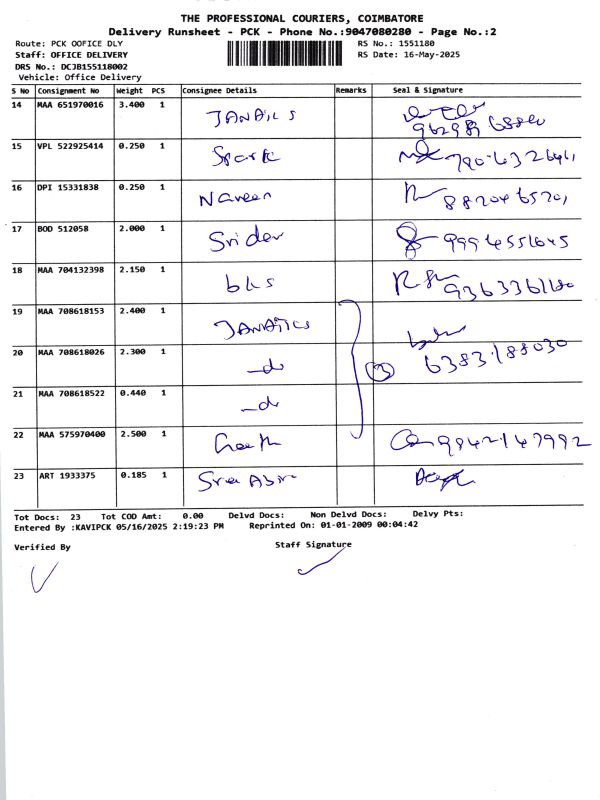 THE PROFESSIONAL COURIERS, COIMBATORE
Delivery Runsheet - PCK - Phone No.:9047080280 - Page No.:2
Route: PCK OOFICE DLY RS No.: 1551180
Staff: OFFICE DELIVERY RS Date: 16-May-2025
DRS No.: DCJB155118002
Vehicle: Office Delivery
S No Consignment No Weight PCS Consignee Details Remarks Seal & Signature
14 MAA 651970016 3.400 1 JANATICS
15 VPL 522925414 0.250 1 Spark
16 DPI 15331838 0.250 1 Naveen
17 BOD 512058 2.000 1 Sridev 9994551645
18 MAA 704132398 2.150 1 bks
19 MAA 708618153 2.400 1 JANATICS
20 MAA 708618026 2.300 1 -do 3 6383188030
21 MAA 708618522 0.440 1 -do
22 MAA 575970400 2.500 1 9942147992
23 ART 1933375 0.185 1
Tot Docs: 23 Tot COD Amt: 0.00 Delvd Docs: Non Delvd Docs: Delvy Pts:
Entered By :KAVIPCK 05/16/2025 2:19:23 PM Reprinted On: 01-01-2009 00:04:42
Verified By Staff Signature